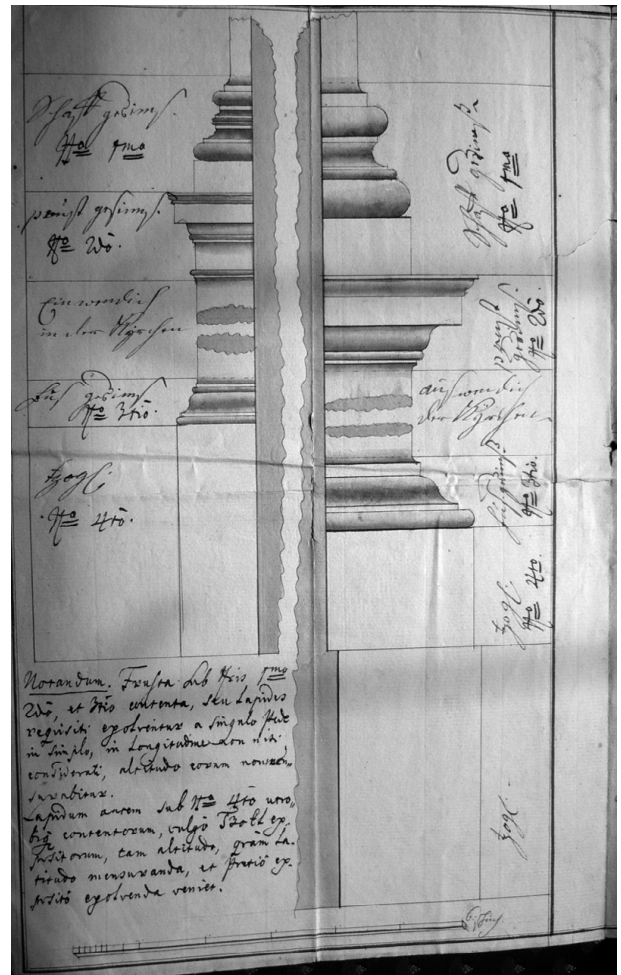 Schafft gesims.
No 1mo
prust gesims.
No 2do.
Einwendich
in der Kyrchen
Fus gesims
No 3tio.
Zogl.
No 4to.
Schafft gesims
No 1mo
prust
gesims.
No 2do.
aus wendich
der Kyrchen
fus gesims.
No 3tio.
Zogl.
No 4to.
Zogl.
Notandum. Frusta sub Nris 1mo
2do, et 3tio contenta, seu Lapides
requisiti expolventur a singulo Pede
in simplo, in Longitudine non nisi
considerati, altitudo eorum nonmen-
surabitur.
Lapidum autem sub No 4to utro-
biq contentorum, vulgo Tzokl ex-
positorum, tam altitudo, quam La-
titudo mensuranda, et Pretio ex-
posito expolvenda veniet.
6 Schuch